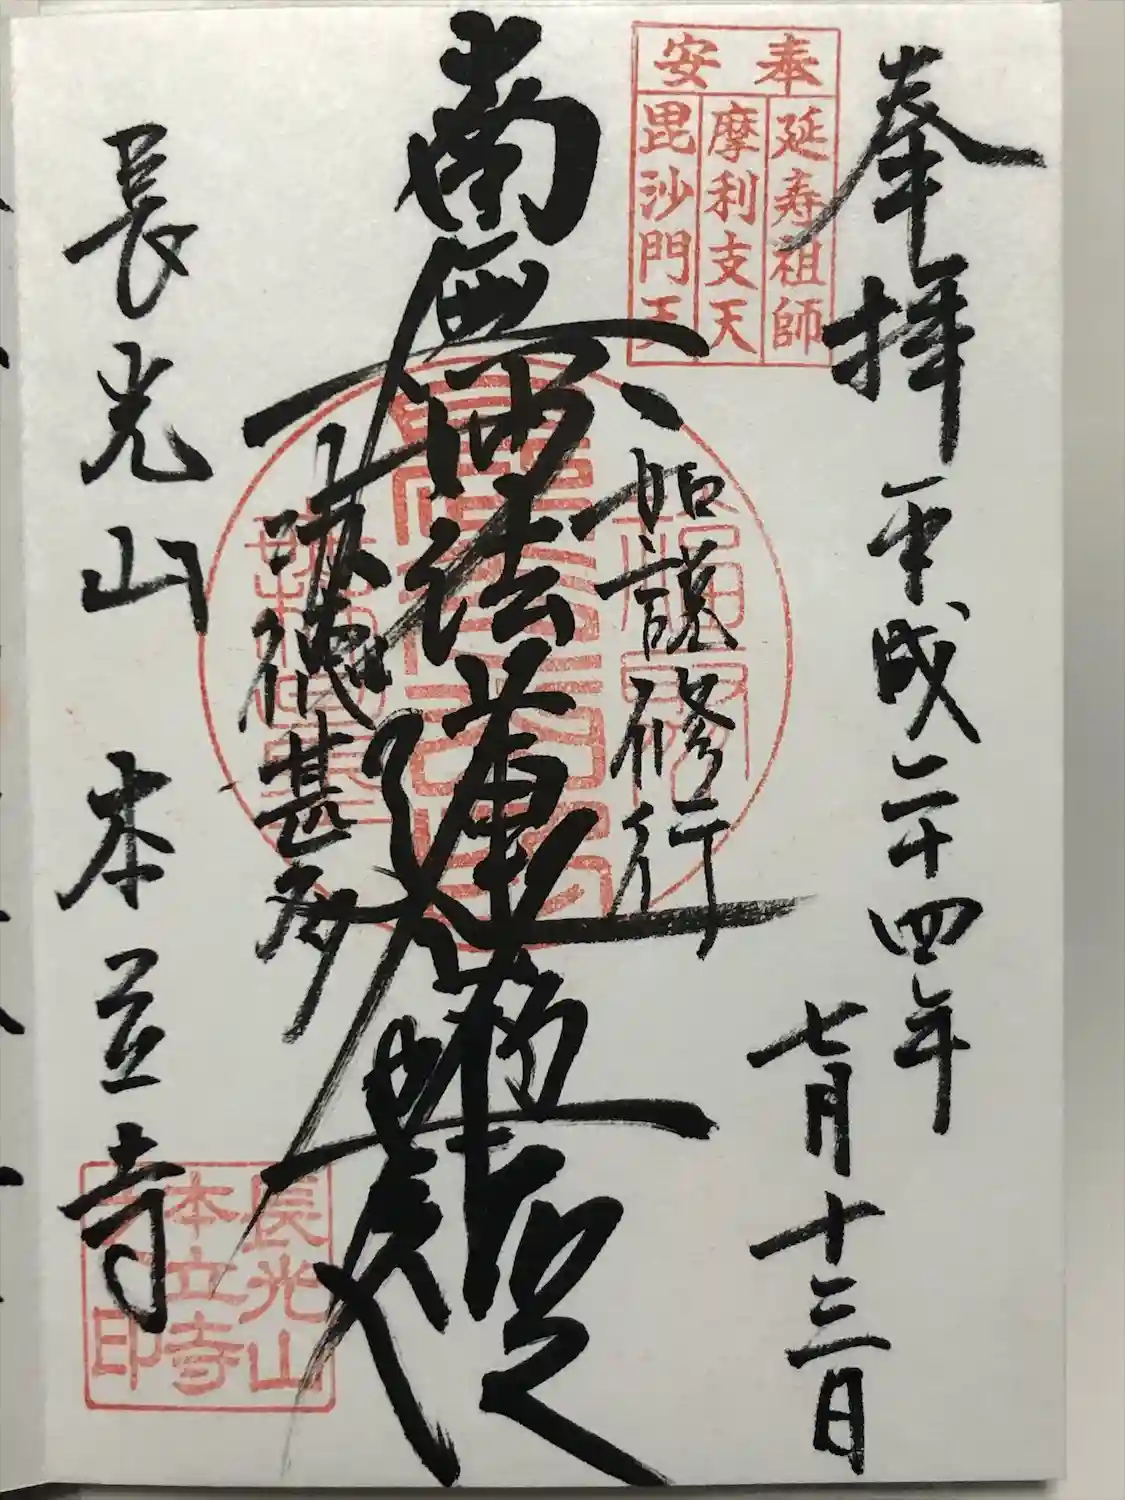 奉拝
平成二十四年
七月十三日
奉安
延寿祖師
摩利支天
毘沙門天
如説修行
南無妙法蓮華経
功徳甚多
長光山
本立寺
長光山
本立寺